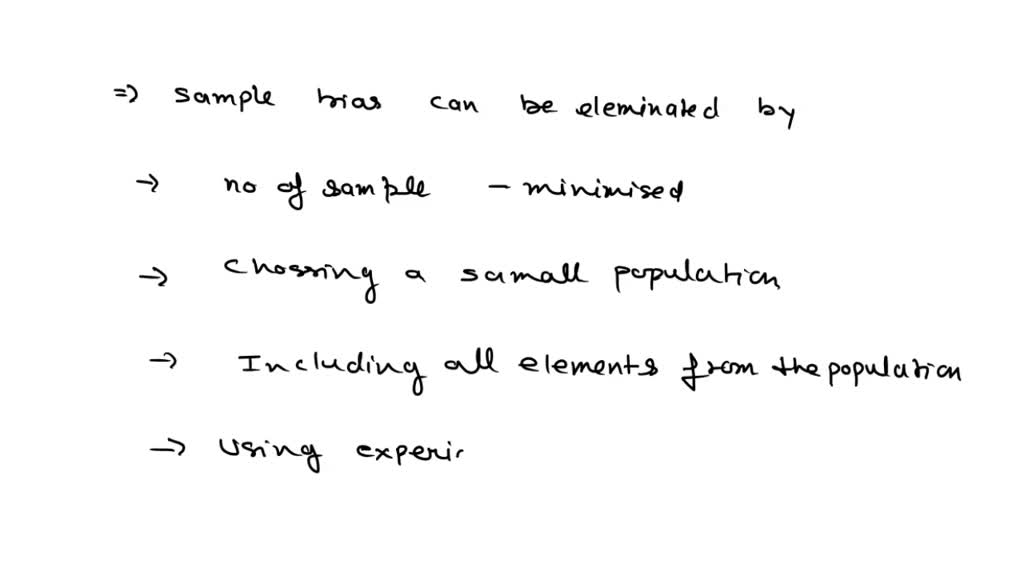 => sample bias can be eleminated by
→ no of sample – minimised
→ chossing a samall population
→ Including all elements from the population
→ using experi